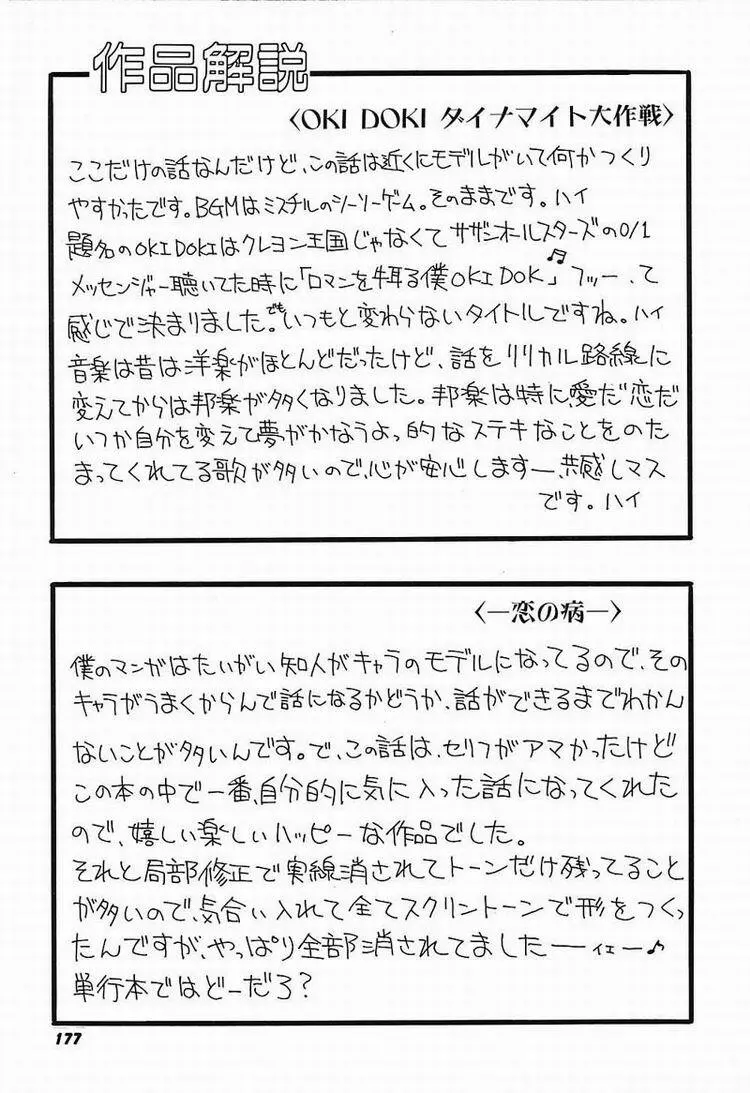 作品解説
〈OKI DOKI ダイナマイト大作戦〉
ここだけの話なんだけど、この話は近くにモデルがいて何かつくり
やすかったです。BGMはミスチルのシーソーゲーム。そのままです。ハイ
題名のOKI DOKIはクレヨン王国じゃなくてサザンオールスターズの01
メッセンジャー聴いてた時に「ロマンを牛耳る僕OKI DOK♫」フッー、て
感じで決まりました。でもいつもと変わらないタイトルですね。ハイ
音楽は昔は洋楽がほとんどだったけど、話をリリカル路線に
変えてからは邦楽が多くなりました。邦楽は特に、愛だ恋だ
いつか自分を変えて夢がかなうよっ的なステキなことをのた
まってくれてる歌が多いので、心が安心しますー、共感しマス
です。ハイ
〈―恋の病―〉
僕のマンガはたいがい知人がキャラのモデルになってるので、その
キャラがうまくからんで話になるかどうか、話ができるまでわかん
ないことが多いんです。で、この話は、セリフがアマかったけど
この本の中で一番、自分的に気に入った話になってくれた
ので、嬉しい楽しいハッピーな作品でした。
それと局部修正で実線消されてトーンだけ残ってること
が多いので、気合い入れて全てスクリントーンで形をつくっ
たんですが、やっぱり全部消されてましたーーイェー♪
単行本ではどーだろ?
177